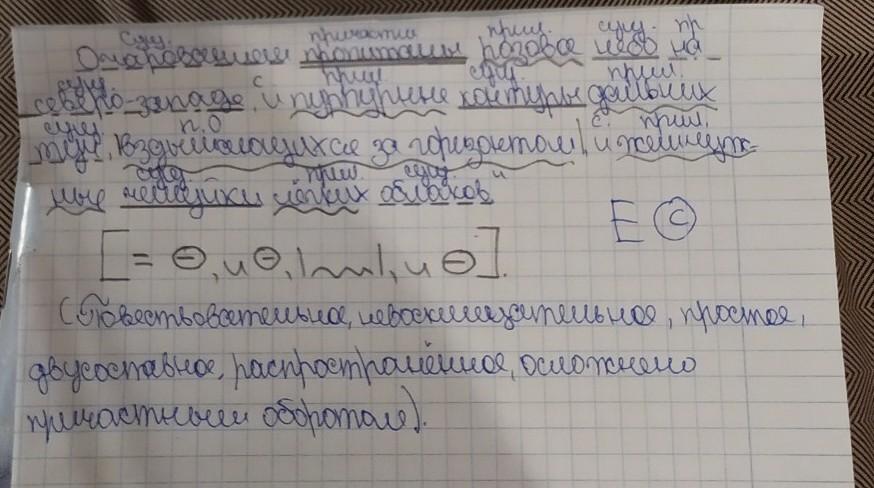 сущ. причастие прил. сущ. пр
Очарованием пропитаны розовое небо на
сущ. с прил. сущ. прил.
северо-западе, и пурпурные контуры дальних
сущ. п.о с. прил.
туч, вздымающихся за горизонтом, и жемчуж-
сущ. прил. сущ.
ные чешуйки лёгких облаков
Е С
[= ⊖, и ⊖, |~~|, и ⊖].
(Повествовательное, невосклицательное, простое,
двусоставное, распространённое, осложнено
причастным оборотом).